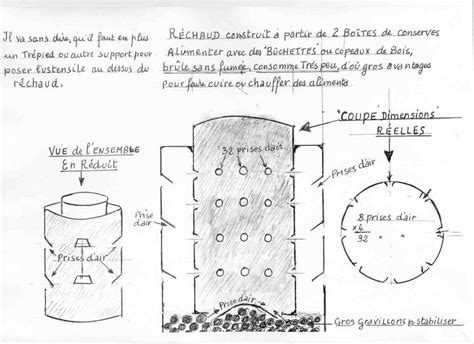 Il va sans dire, qu'il faut en plus
un Trépied ou autre support pour
poser l'ustensile au dessus du
réchaud.
RÉCHAUD construit à partir de 2 BOÎTES de conserves
Alimenter avec des "BÛCHETTES" ou copeaux de Bois,
brûle sans fumée, consomme Très peu, d'où gros avantages
pour faire cuire ou chauffer des aliments
"COUPE Dimensions
RÉELLES"
VUE de l'ENSEMBLE
En Réduit
32 prises d'air
Prises d'air
Prise
d'air
8 prises d'air
x4
32 " "
Prises d'air
Prise d'air
Gros Gravillons p. stabiliser